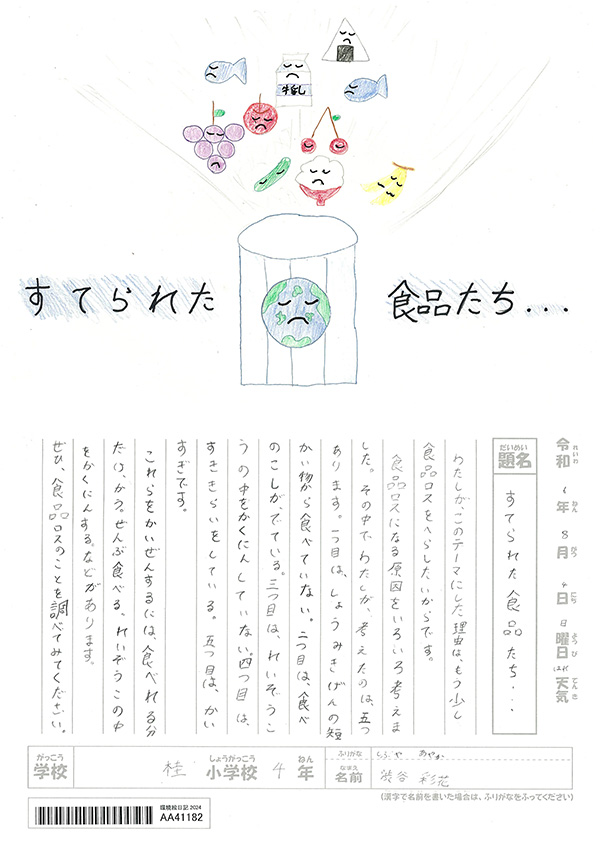 牛にゅう
すてられた 食品たち...
令和 6年 8月 4日 日曜日 天気
れいわ ねん がつ にち ようび てんき
だいめい
題名 すてられた食品たち...
わたしが、このテーマにした理由は、もう少し
食品ロスをへらしたいからです。
食品ロスになる原因をいろいろ考えま
した。その中でわたしが、考えたのは、五つ
あります。一つ目は、しょうみきげんの短
かい物から食べていない。二つ目は、食べ
のこしが、でている。三つ目は、れいぞうこ
うの中をかくにんしていない。四つ目は、
すききらいをしている。五つ目は、かい
すぎです。
これらをかいぜんするには、食べれる分
だけ、かう。ぜんぶ食べる、れいぞうこの中
をかくにんする。などがあります。
ぜひ、食品ロスのことを調べてみてください。
がっこう しょうがっこう ねん ふりがな しぶや あやか
学校 桂 小学校 4年 なまえ 名前 渋谷 彩花
(漢字で名前を書いた場合は、ふりがなをふってください)
環境絵日記2024
AA41182